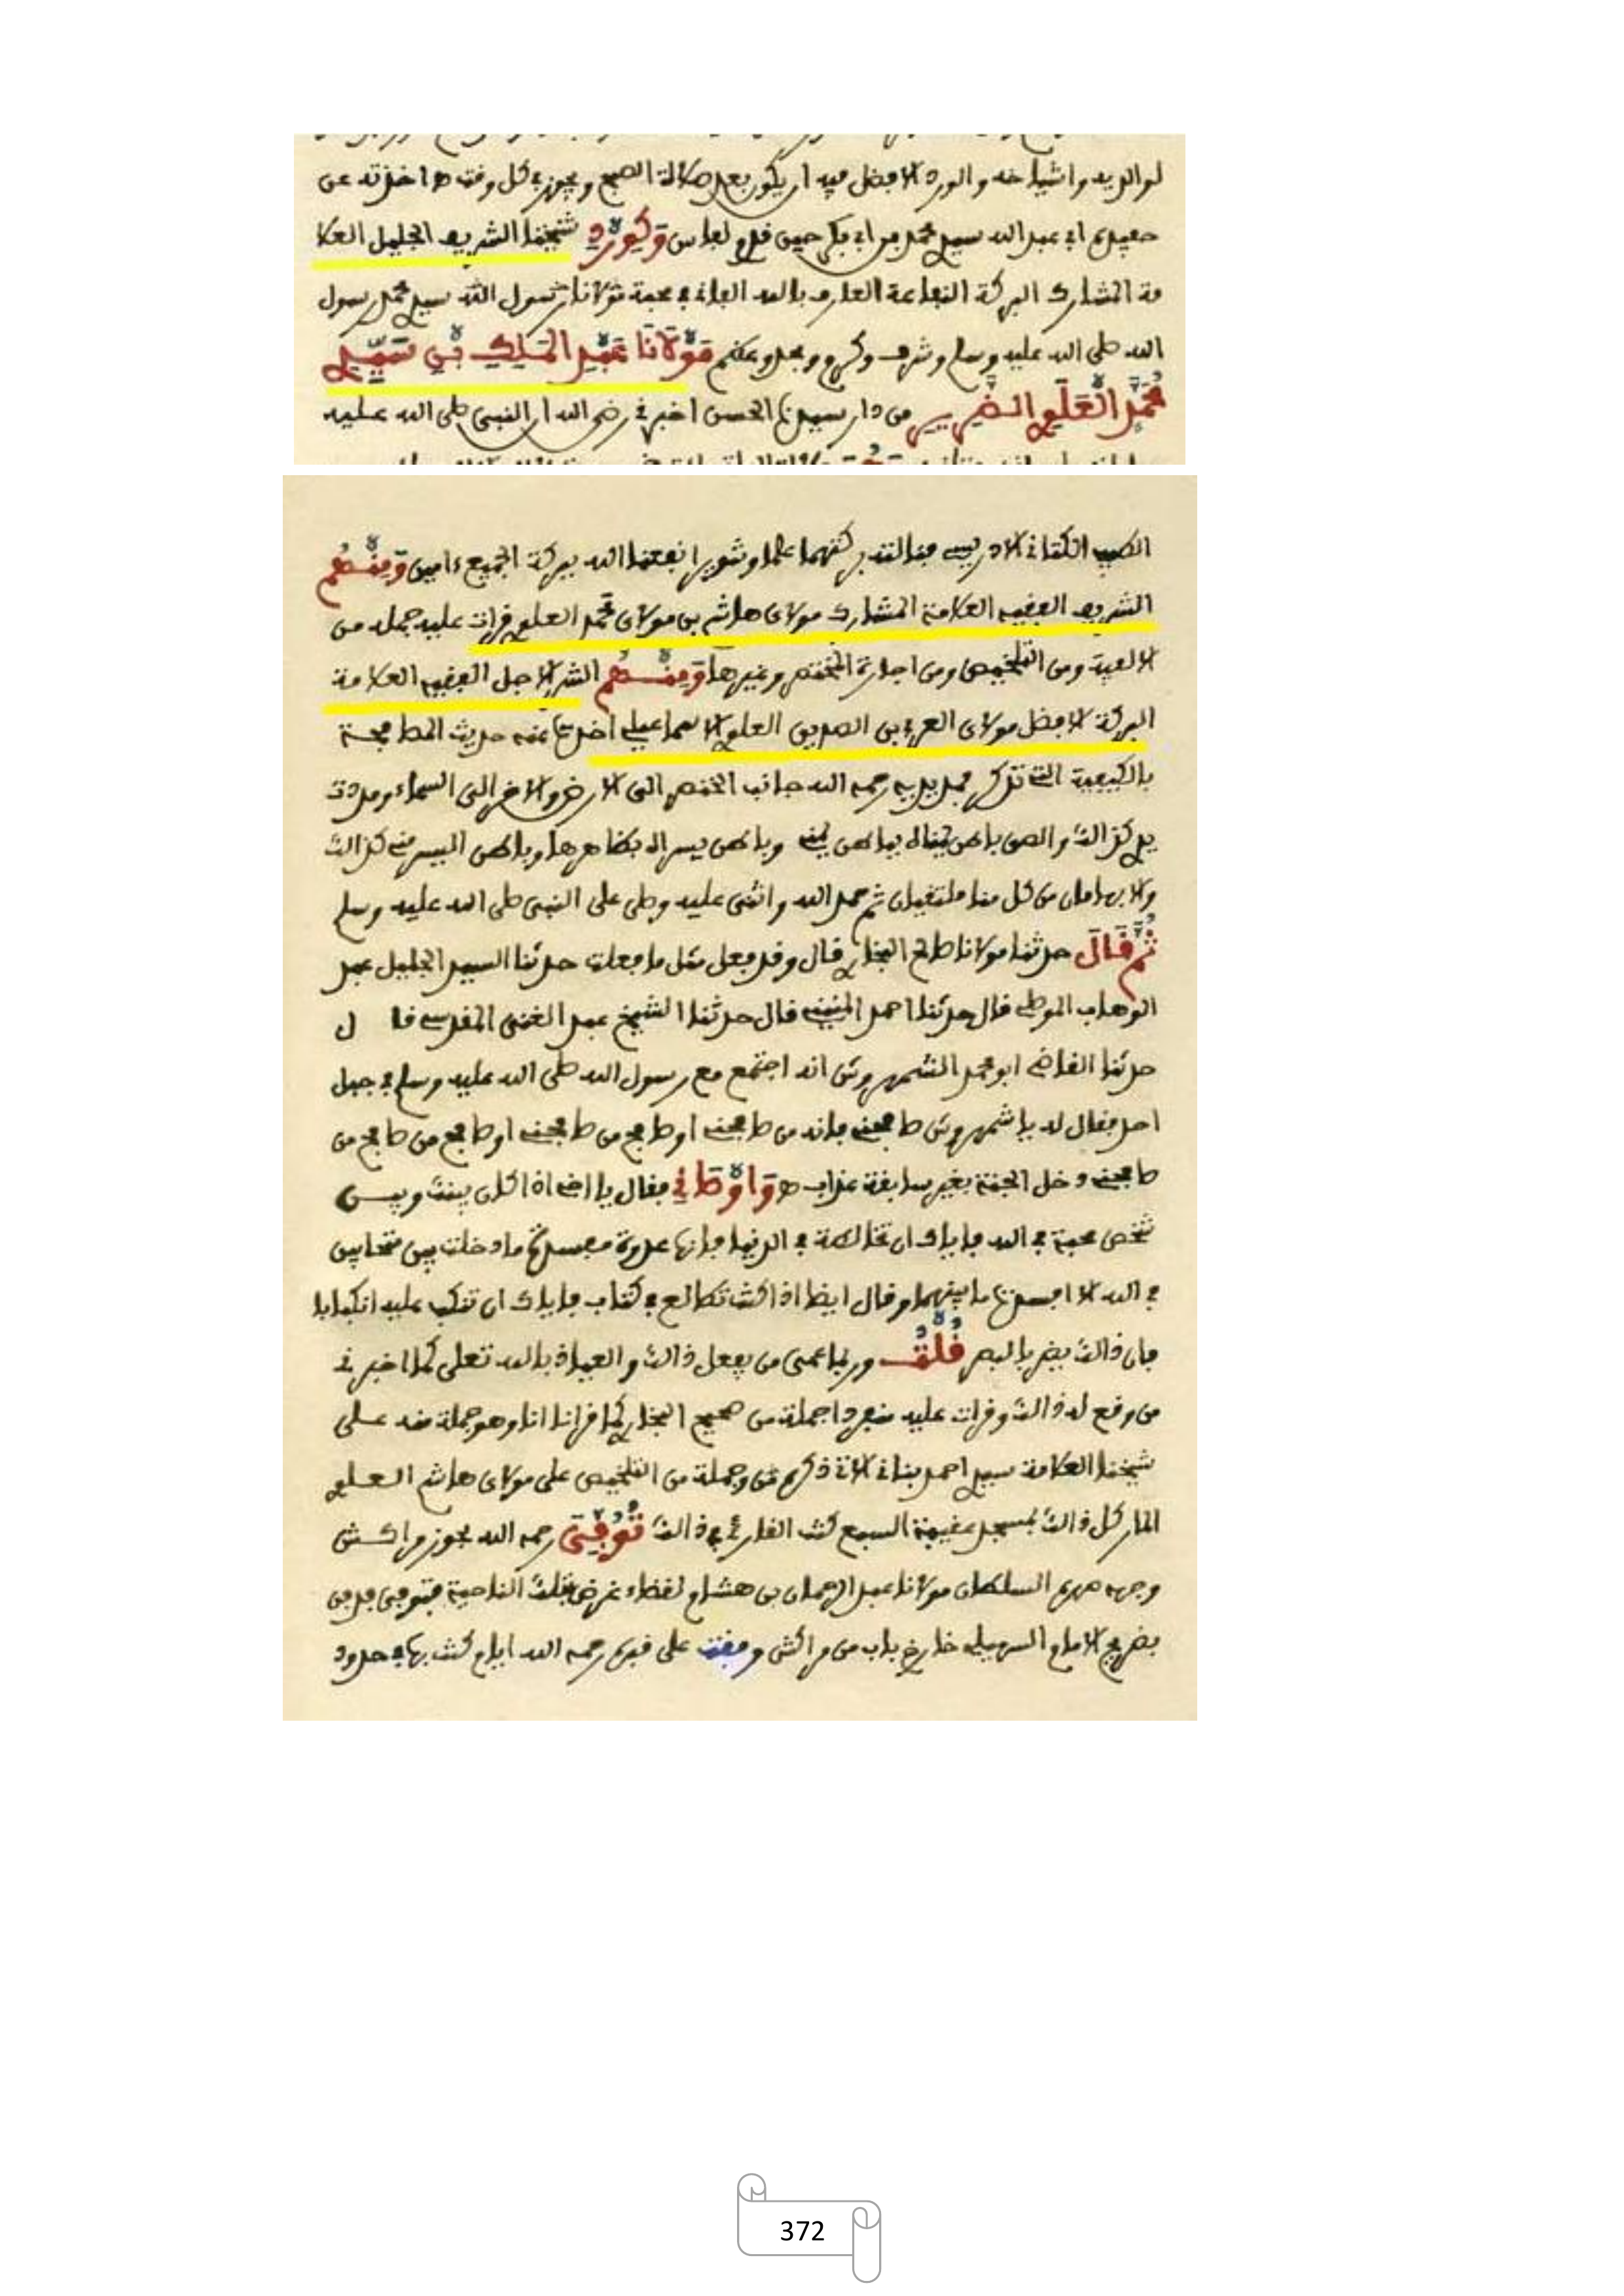 لوالديه واشياخه والورد الافضل فيه ان يكون بعد صلاة الصبح ويجوز في كل وقت ها اخذته عن
حفيده ابي عبد الله سيدي محمد بن ابي بكر حين قدم لفاس شيخنا الشريف الجليل العلا
مة المشارك البركة النفاعة العارف بالله الفاني في محبة مولانا رسول الله سيدي محمد رسول
الله صلى الله عليه وسلم وشرف وكرم ومجد وعظم مولانا عبد الملك بن سيدي
محمد العلوي الضرير من دار سيدنا الحسن اخبرني رضي الله ان النبي صلى الله عليه
الطيب الكتاني الادريسي علما وشورا نفعنا الله ببركة الجميع ءامين ومنهم
الشريف الفقيه العلامة المشارك مولاي هاشم بن مولاي محمد العلوي قرات عليه جملة من
الالفية ومن التلخيص ومن اجازة المختصر وغيرها ومنهم الشريف الاجل الفقيه العلامة
البركة الافضل مولاي العربي بن الصديق العلوي الاسماعيلي اخذنا عنه حديث المطاجنة
بالكيفية التي تذكر فمد يديه رحمه الله جانب الخنصر الى الارض والاخر الى السماء ومددت
يدي كذالك والصق باطن يمناه بباطن يمنى وباطن يسراه بظاهرها وباطن اليسر منى كذالك
والابهامان من كل منا ملتقيان ثم حمد الله واثنى عليه وصلى على النبي صلى الله عليه وسلم
ثم قال حدثنا مولانا صالح البخاري قال وقد فعل مثل ما فعلت حدثنا السيد الجليل عبد
الوهاب الموصلي قال حدثنا احمد المنيني قال حدثنا الشيخ عبد الغني المقدسي قا ل
حدثنا القاضي ابو محمد الشمهروش انه اجتمع مع رسول الله صلى الله عليه وسلم في جبل
احد فقال له يا شمهروش طاجني فانه من طاجنني او طاجن من طاجنني او طاجن من طاجن من
طاجنني دخل الجنة بغير سابقة عذاب ه واوصاني فقال يا اخي اذا كان بينك وبيـن
شخص محبة في الله فاياك ان تخالطه في الدنيا فانها عدوة مفسدة ما دخلت بين متحابين
في الله الا افسدت ما بينهما وقال ايضا اذا كنت تطالع في كتاب فاياك ان تنكب عليه انكبابا
فان ذالك يضر بالبصر قلت وربما عمى من يفعل ذالك والعياذ بالله تعلى كما اخبرني
من وقع له ذالك وقرات عليه منفردا جملة من صحيح البخاري كما قرانا انا وهو جملة منه على
شيخنا العلامة سيدي احمد بناني الاتي ذكره وجملة من التلخيص على مولاي هاشم العلوي
المار كل ذالك بمسجد عقيبة السبع كنت القارئ في ذالك توفى رحمه الله بحوز مراكش
وجهه مهرم السلطان مولانا عبد الرحمان بن هشام لقضاء غرض بتلك الناحية فتوفى فدفن
بضريح الامام السهيلي خارج باب من مراكش وقفت على قبره رحمه الله ايام كنت بها في حدود
372